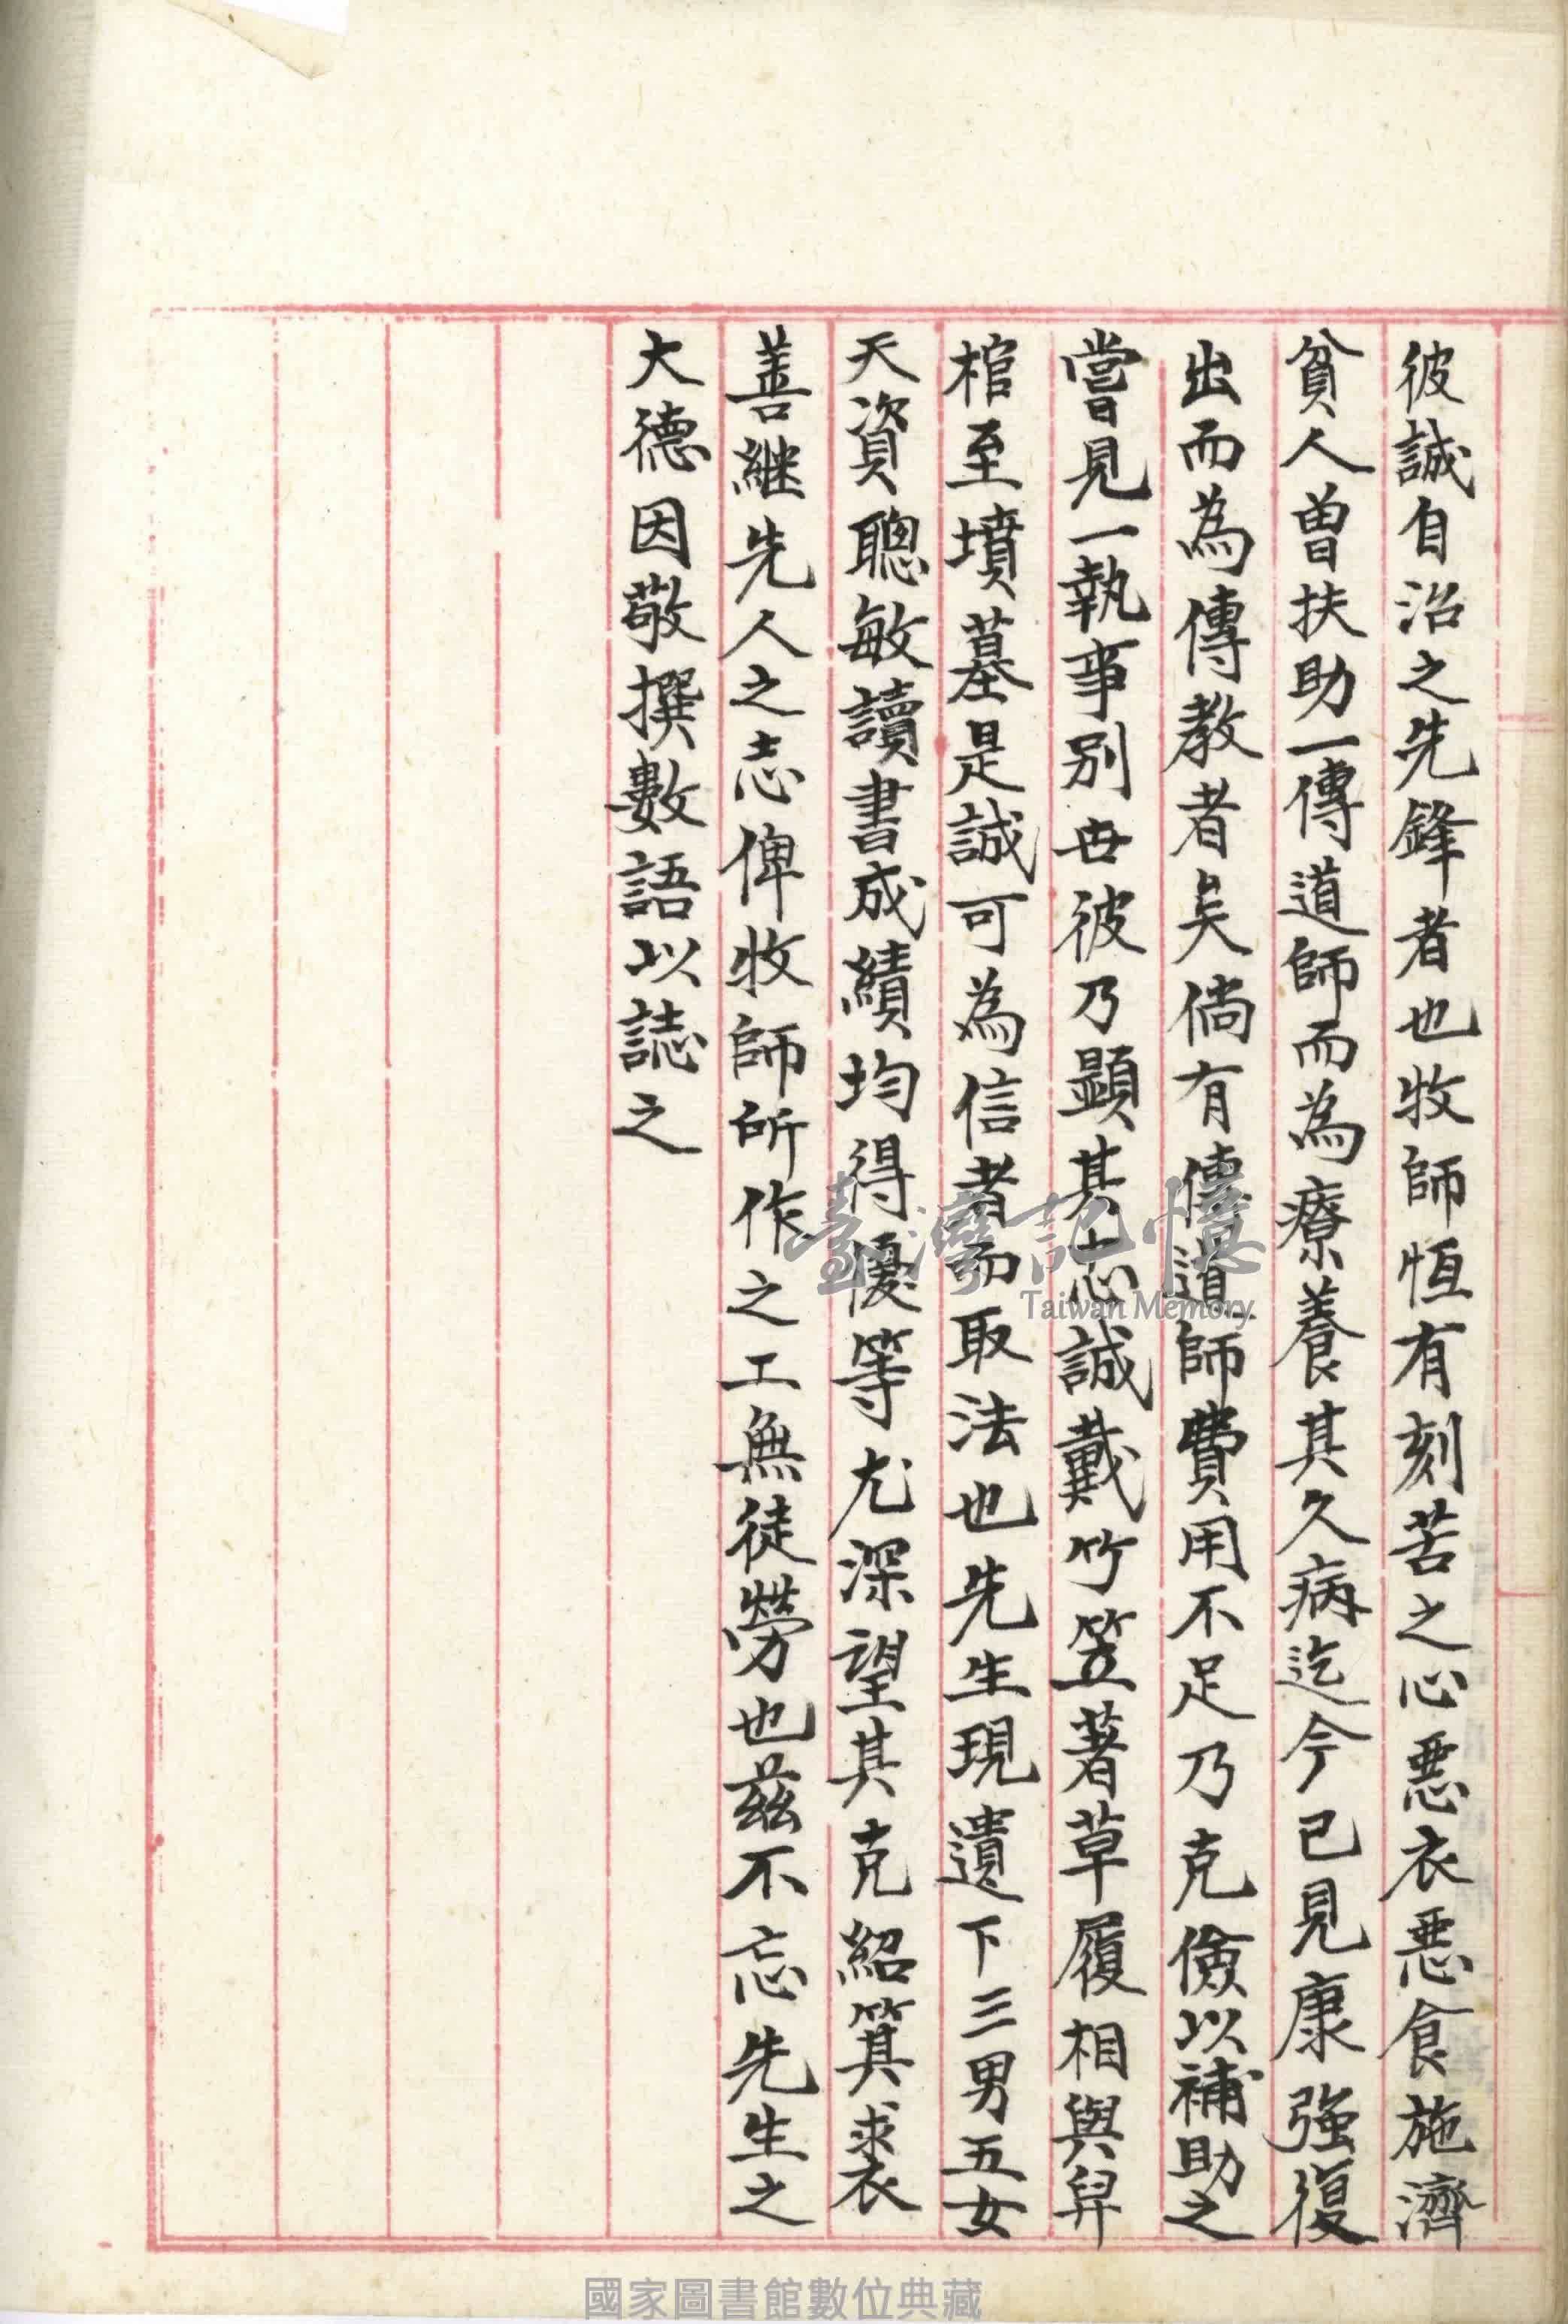 彼誠自治之先鋒者也牧師恆有刻苦之心惡衣惡食施濟
貧人曾扶助一傳道師而為療養其久病迄今已見康強復
出而為傳教者矣倘有傳道師費用不足乃克儉以補助之
嘗見一執事別世彼乃顯其志誠戴竹笠著草履相與舁
棺至墳墓是誠可為信者而取法也先生現遺下三男五女
天資聰敏讀書成績均得優等尤深望其克紹箕裘
善繼先人之志俾牧師所作之工無徒勞也茲不忘先生之
大德因敬撰數語以誌之
臺灣記憶
Taiwan Memory
國家圖書館數位典藏